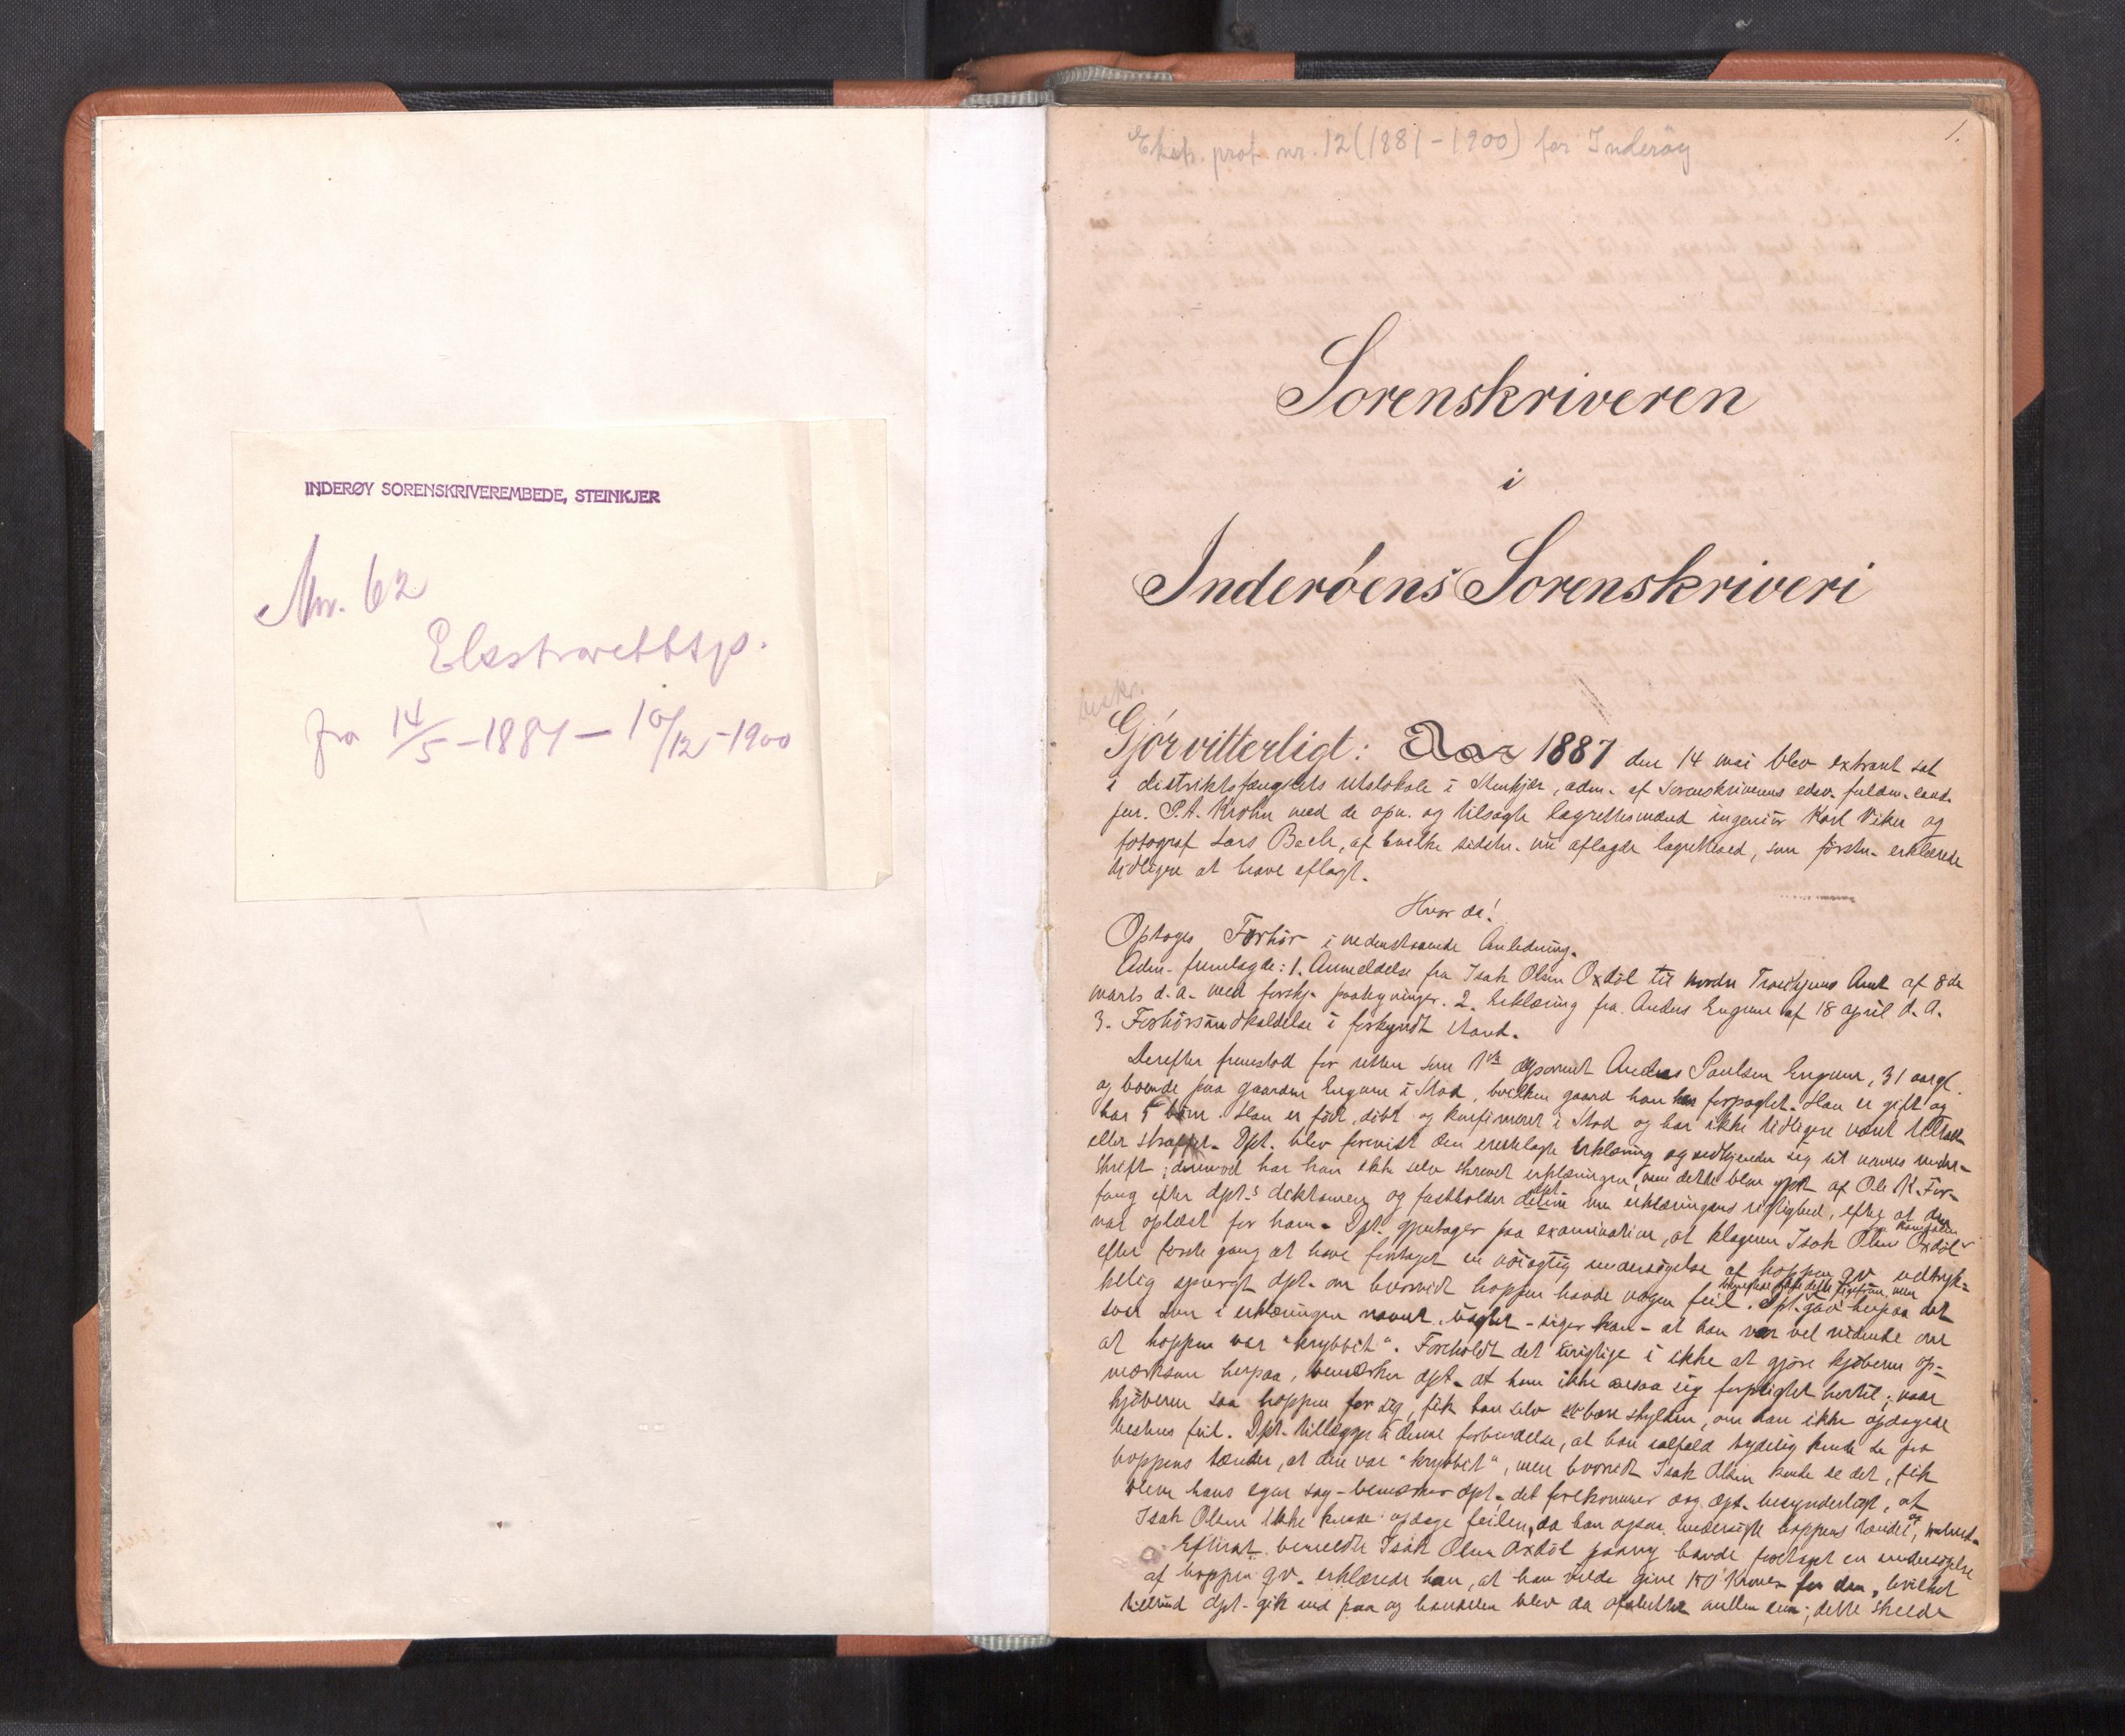 INDERØY SORENSKRIVEREMBEDE, STEINKJER
Nr. 62
Ekstrarettsp.
fra 14/5 - 1887 - 10/12 - 1900
Ekstr. prot nr. 12 (1881-1900) for Inderøy
1.
Sorenskriveren
i
Inderöens Sorenskriveri
beskr.
Gjör vitterligt: Aar 1887 den 14 mai blev extraret sat
i distriktsfængslets retslokale i Stenkjær, adm. af Sorenskriverens edsv. fuldm. cand.
jur. P.A. Krohn med de opn. og tilsagte lagrettesmænd ingeniör Karl Viker og
fotograf Lars Beck, af hvilke sidstn. nu aflagde lagretteed, som förstn. erklærede
tidligere at have aflagt.
Hvor da!
Optoges Forhör i nedenstaaende Anledning.
Adm. fremlagde: 1. Anmeldelse fra Isak Olsen Oxdöl til nordre Trondhjems Amt af 8de
marts d.a. med forskj. paategninger. 2. Erklæring fra Anders Engum af 18 april d.A.
3. Forhörsindkaldelse i forkyndt stand.
Derefter fremstod for retten som 1ste deponent Anders Paulsen Engum, 31 aar gl.
og boende paa gaarden Engum i Stod, hvilken gaard han har forpagtet. Han er gift og
har 5 börn. Han er födt, döbt og konfirmeret i Stod og har ikke tidligere været tiltalt
eller straffet. Dpt. blev forevist den fremlagte erklæring og vedkjender sig sit navns under-
skrift; derimod har han ikke selv skrevet erklæringen, men dette blev gjort af Ole K. For-
fang efter dpt.s diktamen og fastholder dpt. erklæringens rigtighed, efter at den
var oplæst for ham. Dpt. gjentager paa examination, at klageren Isak Olsen Oxdöl
efter förste gang at have foretaget en nöiagtig undersögelse af hoppen qv. udtryk-
kelig spurgt dpt. om hvorvidt hoppen havde nogen feil. Dpt. gav herpaa det
svar som i erklæringen nævnt. - siger han - at han var vel vidende om
at hoppen var "krybbit". Foreholdt det urigtige i ikke at gjöre kjöberen op-
mærksom herpaa, bemærker dpt. at han ikke ansaa sig forpligtet hertil; naar
kjöberen saa hoppen for sig, fik han selv bære skylden, om han ikke opdagede
hestens feil. Dpt. tillægger i denne forbindelse, at han ialfald tydelig kunde se paa
hoppens tænder, at den var "krybbit", men hvorvidt Isak Olsen kunde se det, fik
blive hans egen sag - bemærker dpt. det forekommer og dpt. besynderligt, at
Isak Olsen ikke kunde opdage feilen, da han ogsaa undersögte hoppens tænder,
Efterat bemeldte Isak Olsen Oxdöl paany havde foretaget en undersögelse
af hoppen qv. erklærede han, at han vilde give 150 Kroner for den, hvilket
tilbud dpt. gik ind paa og handelen blev da afsluttet mellem dem; dette skeede